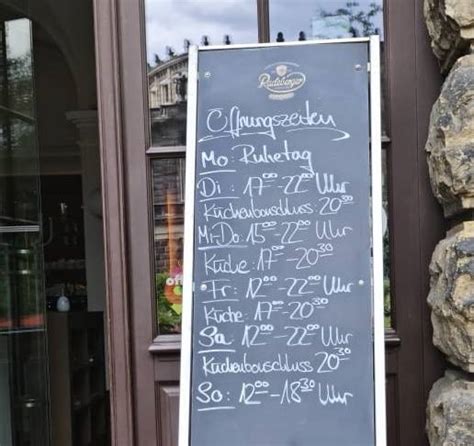 Radeberger
Öffnungszeiten
Mo: Ruhetag
Di: 17⁰⁰-22⁰⁰ Uhr
Küchenbonschluss: 20³⁰
Mi-Do: 15⁰⁰-22⁰⁰ Uhr
Küche: 17⁰⁰-20³⁰
Fr: 12⁰⁰-22⁰⁰ Uhr
Küche: 17⁰⁰-20³⁰
Sa: 12⁰⁰-22⁰⁰ Uhr
Küchenbonschluss 20³⁰
So: 12⁰⁰-18³⁰ Uhr